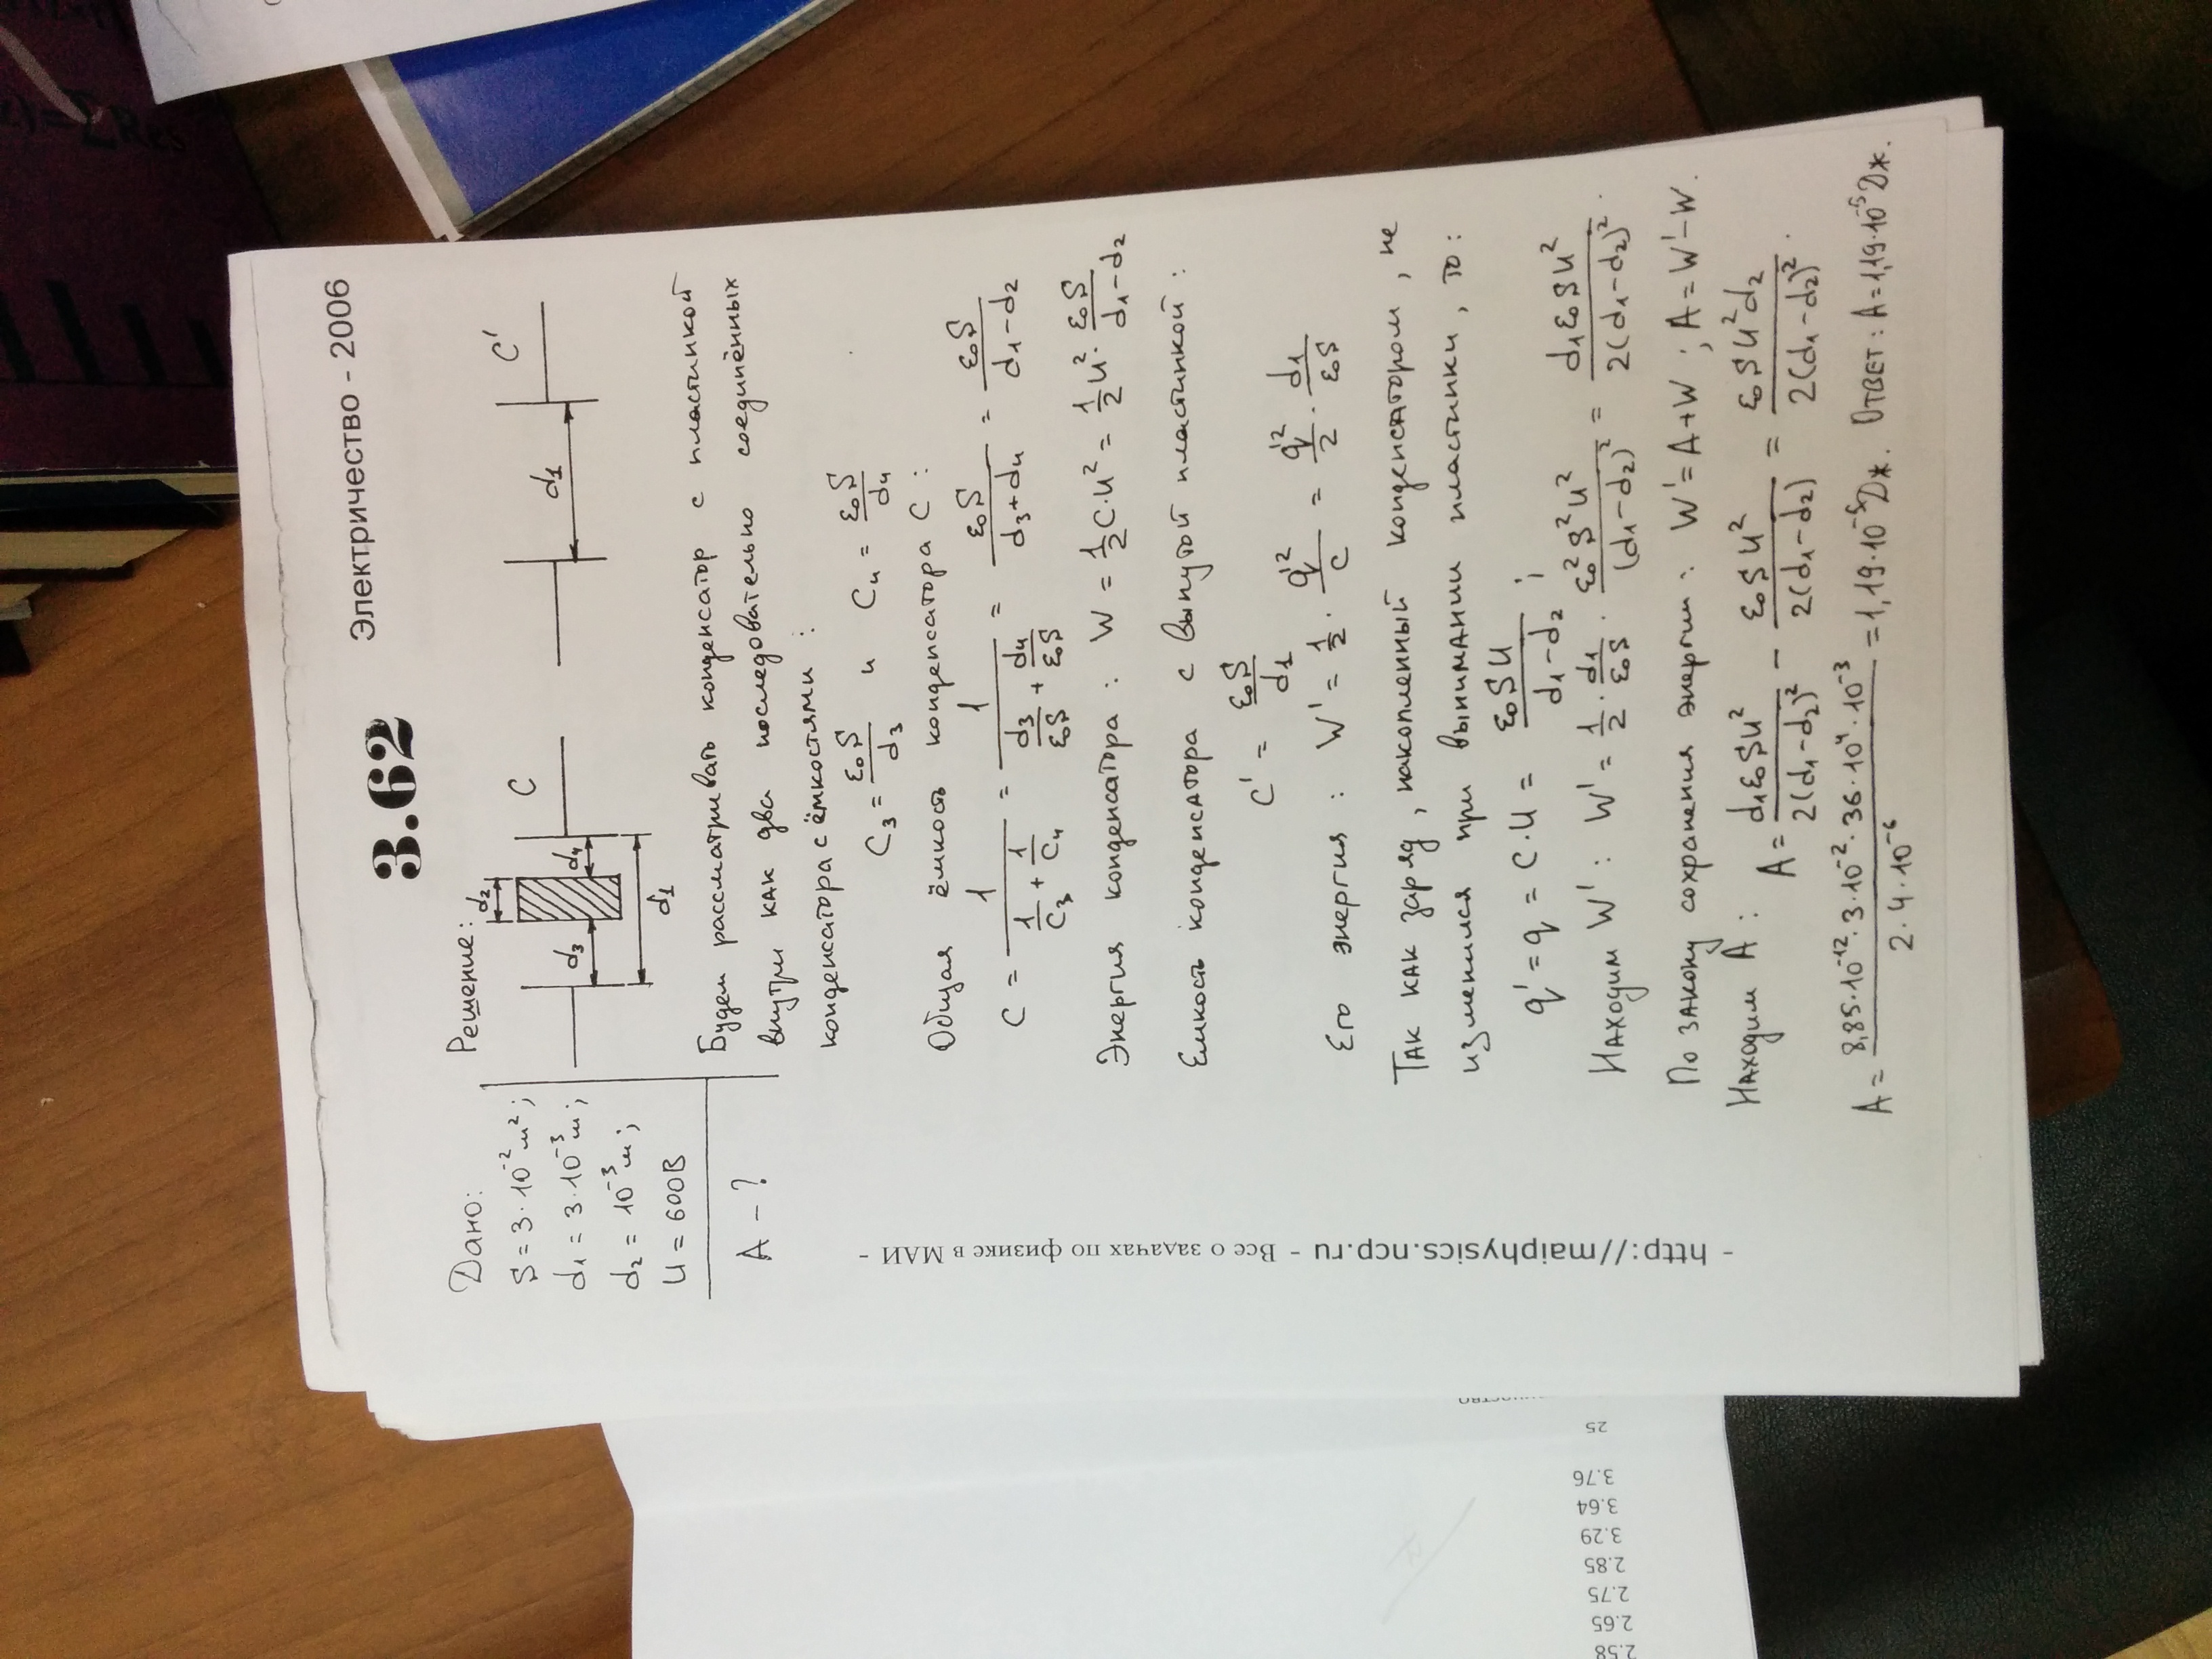 Электричество - 2006
3.62
Дано:
S = 3·10⁻² м²;
d₁ = 3·10⁻³ м;
d₂ = 10⁻³ м;
U = 600В
A - ?
Решение:
d₂
d₃
d₄
d₁
C
d₁
C'
Будем рассматривать конденсатор с пластинкой
внутри как два последовательно соединённых
конденсатора с ёмкостями:
C₃ = ε₀S/d₃ и C₄ = ε₀S/d₄
Общая ёмкость конденсатора C:
C = 1/(1/C₃ + 1/C₄) = 1/(d₃/ε₀S + d₄/ε₀S) = ε₀S/(d₃+d₄) = ε₀S/(d₁-d₂)
Энергия конденсатора: W = 1/2 C·U² = 1/2 U²· ε₀S/(d₁-d₂)
Емкость конденсатора с вынутой пластинкой:
C' = ε₀S/d₁
Его энергия: W' = 1/2 · q'²/C = q'²/2 · d₁/ε₀S
Так как заряд, накопленный конденсатором, не
изменился при вынимании пластинки, то:
q' = q = C·U = ε₀SU/(d₁-d₂);
Находим W': W' = 1/2 · d₁/ε₀S · ε₀²S²U²/(d₁-d₂)² = d₁ε₀SU²/2(d₁-d₂)².
По закону сохранения энергии: W' = A+W; A = W'-W.
Находим A:
A = d₁ε₀SU²/2(d₁-d₂)² - ε₀SU²/2(d₁-d₂) = ε₀SU²d₂/2(d₁-d₂)².
A = 8,85·10⁻¹²·3·10⁻²·36·10⁴·10⁻³/2·4·10⁻⁶ = 1,19·10⁻⁵Дж. Ответ: A = 1,19·10⁻⁵Дж.
- http://maiphysics.ncp.ru - Все о задачах по физике в МАИ -
Res
25
3.76
3.64
3.29
2.85
2.75
2.65
2.58